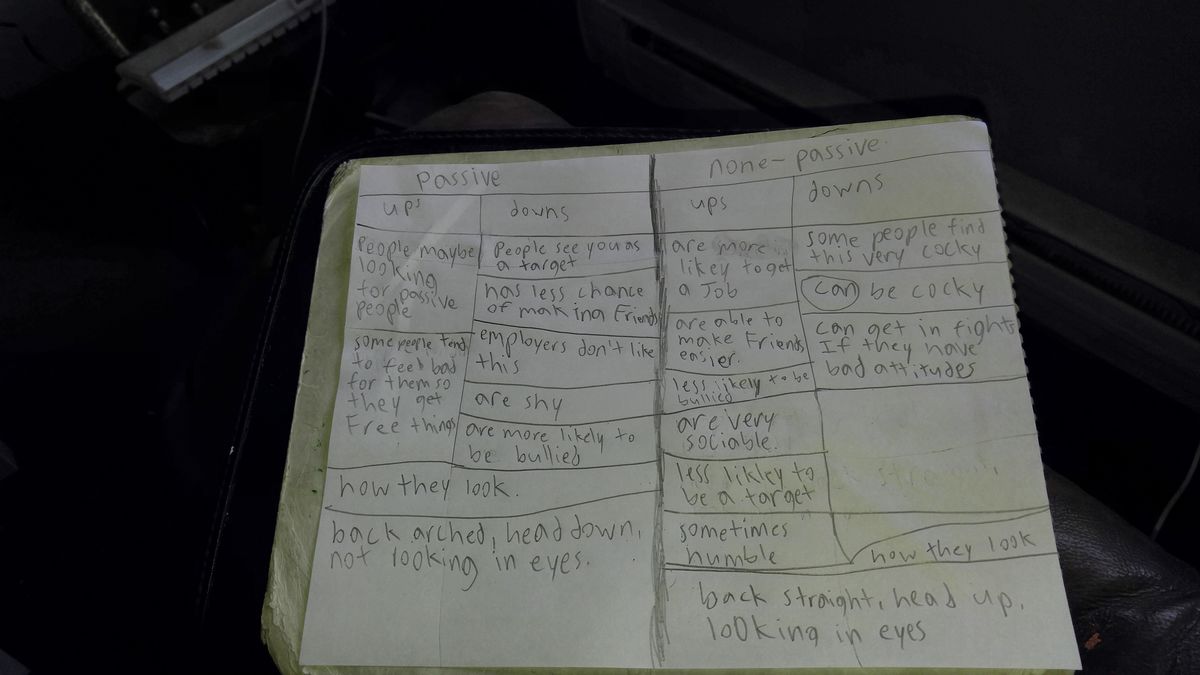 passive
ups
downs
People maybe
looking
for passive
people
some people tend
to feel bad
for them so
they get
Free things
People see you as
a target
has less chance
of making Friends
employers don't like
this
are shy
are more likely to
be bullied
how they look.
back arched, head down,
not looking in eyes.
none-passive.
ups
downs
are more
likey to get
a Job
are able to
make Friends
easier.
less likely to be
bullied
are very
sociable.
less likley to
be a target
sometimes
humble
some people find
this very cocky
can be cocky
can get in fights
If they have
bad attitudes
how they look
back straight, head up,
looking in eyes